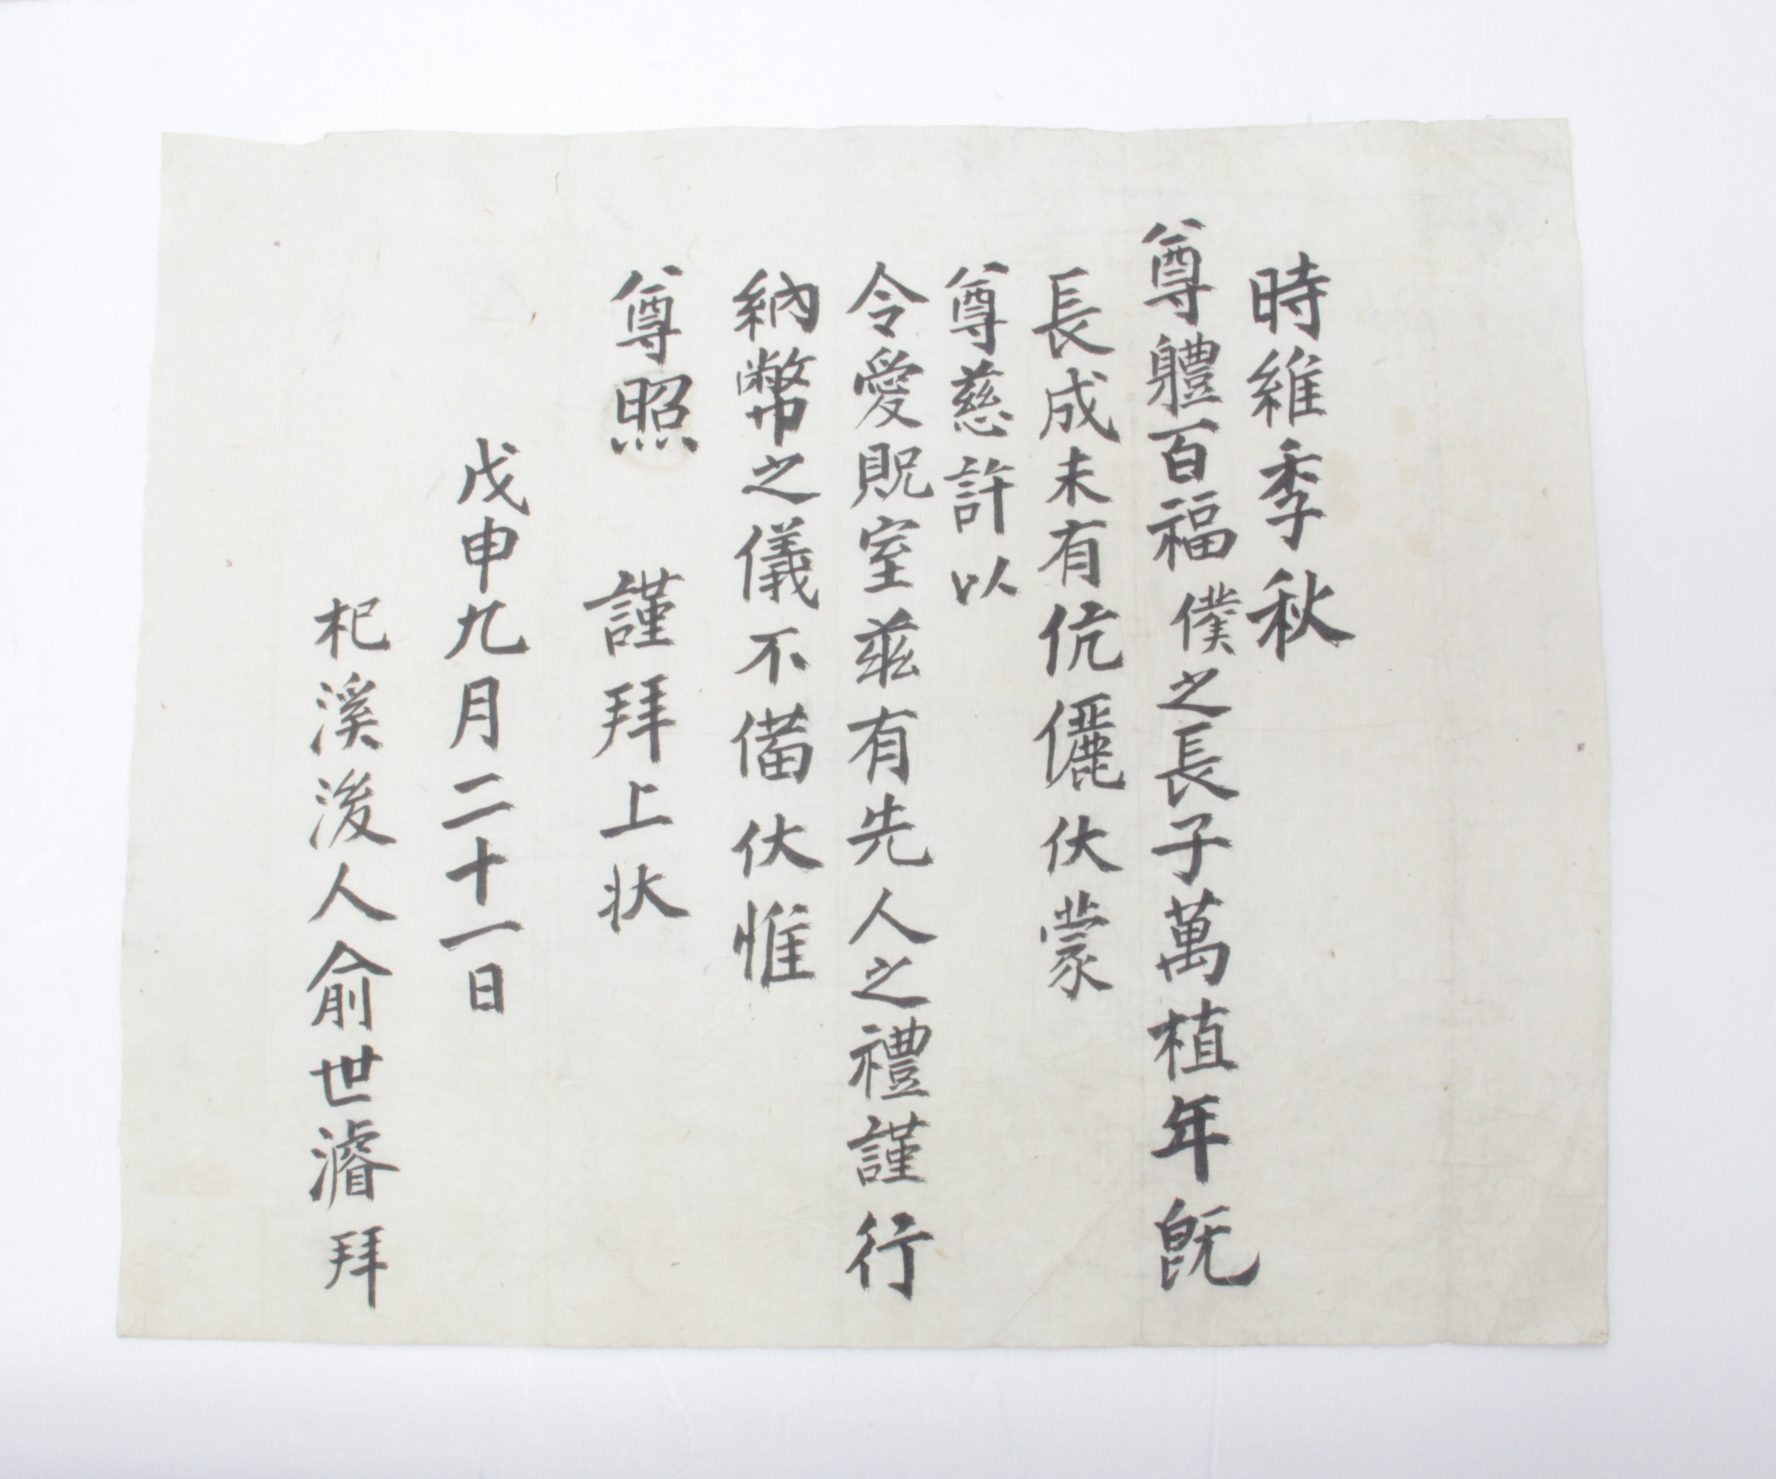 時維季秋
尊軆百福僕之長子萬植年旣
長成未有伉儷伏蒙
尊慈許以
令愛貺室茲有先人之禮謹行
納幣之儀不備伏惟
尊照 謹拜上狀
戊申九月二十一日
杞溪後人俞世濬拜